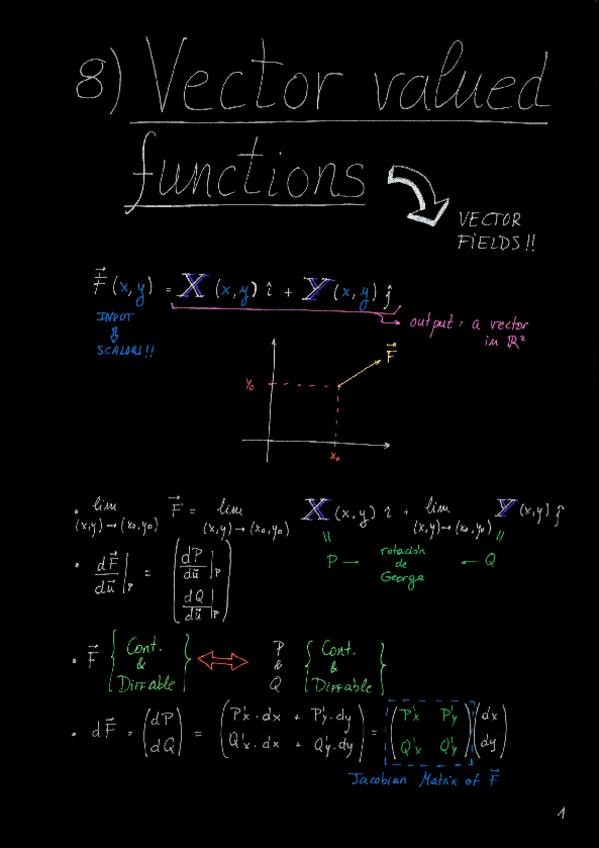 8) Vector valued
functions
VECTOR
FIELDS!!
F⃗(x,y) = X(x,y) î + Y(x,y) ĵ
INPUT
⇕
SCALARS!!
output: a vector
in ℝ²
F⃗
y₀
x₀
• lim (x,y)→(x₀,y₀) F⃗ = lim (x,y)→(x₀,y₀) X(x,y) î + lim (x,y)→(x₀,y₀) Y(x,y) ĵ
P — rotación de George — Q
• dF⃗/du⃗|p = (dP/du⃗|p dQ/du⃗|p)
• F⃗ { Cont. & DIFFable } ⟺ P & Q { Cont. & DIFFable }
• dF⃗ = (dP dQ) = (P'x · dx + P'y · dy Q'x · dx + Q'y · dy) = (P'x P'y Q'x Q'y)(dx dy)
Jacobian Matrix of F⃗
1